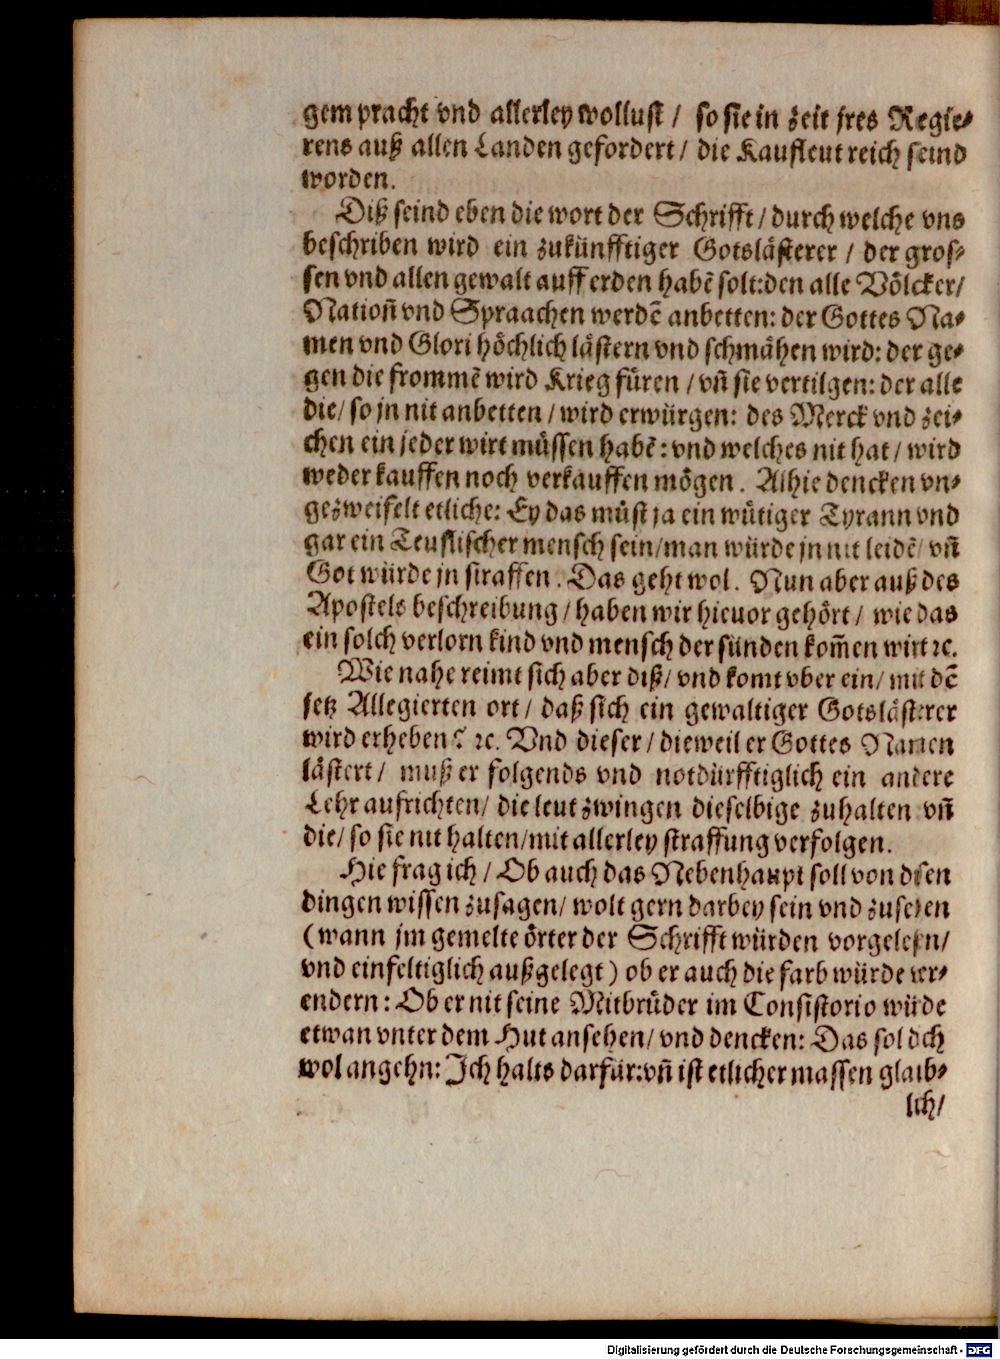 gem pracht vnd allerley wollust / so sie in zeit jres Regie-
rens auß allen Landen gefordert / die Kaufleut reich seind
worden.
Diß seind eben die wort der Schrifft / durch welche vns
beschriben wird ein zukünfftiger Gotslästerer / der gros-
sen vnd allen gewalt auff erden habē solt: den alle Völcker /
Nation̄ vnd Spraachen werdē anbetten: der Gottes Na-
men vnd Glori höchlich lästern vnd schmähen wird: der ge-
gen die frommē wird Krieg füren / vn̄ sie vertilgen: der alle
die / so jn nit anbetten / wird erwürgen: des Merck vnd zei-
chen ein jeder wirt müssen habē: vnd welches nit hat / wird
weder kauffen noch verkauffen mögen. Alhie dencken vn-
gezweifelt etliche: Ey das müst ja ein wütiger Tyrann vnd
gar ein Teuflischer mensch sein / man würde jn nit leidē / vn̄
Got würde jn straffen. Das geht wol. Nun aber auß des
Apostels beschreibung / haben wir hieuor gehört / wie das
ein solch verlorn kind vnd mensch der sünden kom̄en wirt ꝛc.
Wie nahe reimt sich aber diß / vnd komt vber ein / mit dē
jetz Allegierten ort / daß sich ein gewaltiger Gotslästerer
wird erheben? ꝛc. Vnd dieser / dieweil er Gottes Namen
lästert / muß er folgends vnd notdürfftiglich ein andere
Lehr aufrichten / die leut zwingen dieselbige zuhalten vn̄
die / so sie nit halten / mit allerley straffung verfolgen.
Hie frag ich / Ob auch das Nebenhaupt soll von disen
dingen wissen zusagen / wolt gern darbey sein vnd zusehen
(wann jm gemelte örter der Schrifft würden vorgelesen /
vnd einfeltiglich außgelegt) ob er auch die farb würde ver-
endern: Ob er nit seine Mitbrüder im Consistorio würde
etwan vnter dem Hut ansehen / vnd dencken: Das sol doch
wol angehn: Ich halts darfür: vn̄ ist etlicher massen glaub-
lich /
Digitalisierung gefördert durch die Deutsche Forschungsgemeinschaft - DFG